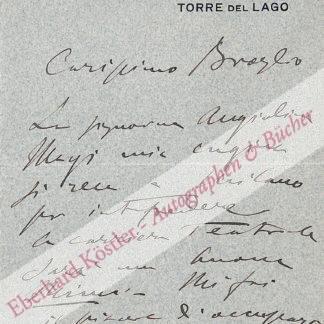 TORRE DEL LAGO
Carissimo Broglio
La signorina Angiolina
Magi mia cugina
si reca a Milano
per intraprendere
la carriera teatrale
Sarà una buona
Mimi Mi fai
il piacere d'occupar
Eberhard Köstler - Autographen & Bücher